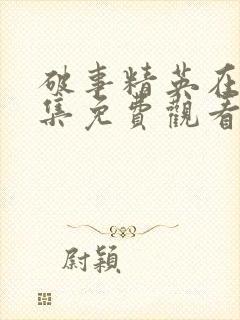 破事精英在
集免費觀看
尉穎